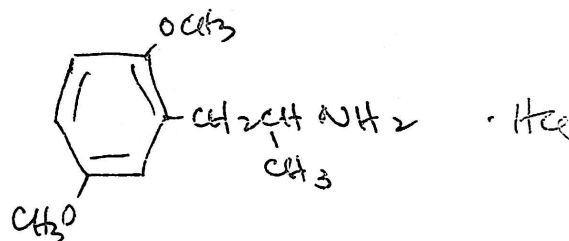 OCH3
CH2CH NH2 · HCl
CH3
CH3O